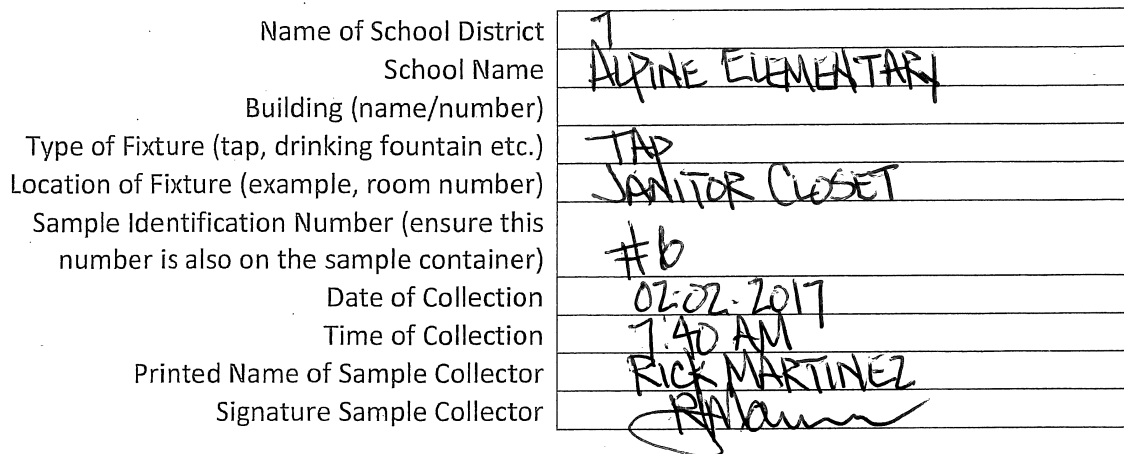 Name of School District 7
School Name ALPINE ELEMENTARY
Building (name/number)
Type of Fixture (tap, drinking fountain etc.) TAP
Location of Fixture (example, room number) JANITOR CLOSET
Sample Identification Number (ensure this
number is also on the sample container) #6
Date of Collection 02.02.2017
Time of Collection 7:40 AM
Printed Name of Sample Collector RICK MARTINEZ
Signature Sample Collector